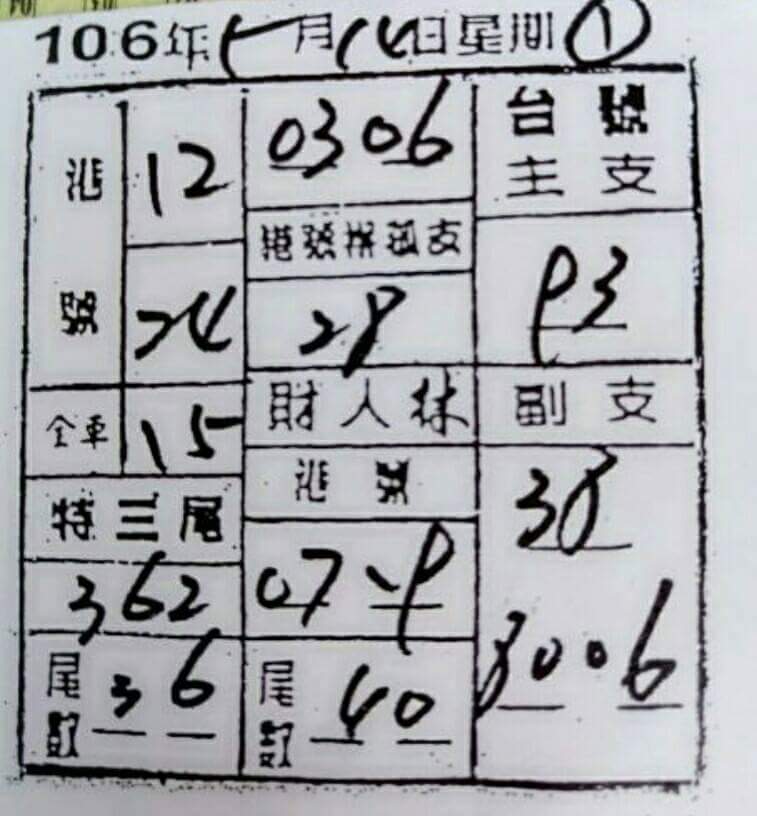 106年5月14日星期①
港號 12 24
全車 15
特三尾
362
尾數 36
0306
港號獨支
28
財人林
港號
07 19
尾數 40
台號
主支
93
副支
38
30 06